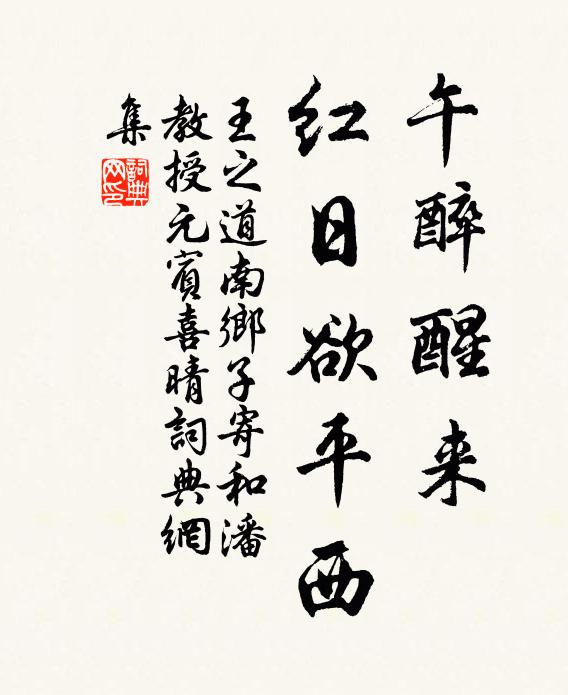 午醉醒来
红日欲平西
王之道南鄉子寄和潘
教授元賓喜晴詞典網
集
詞典
网印